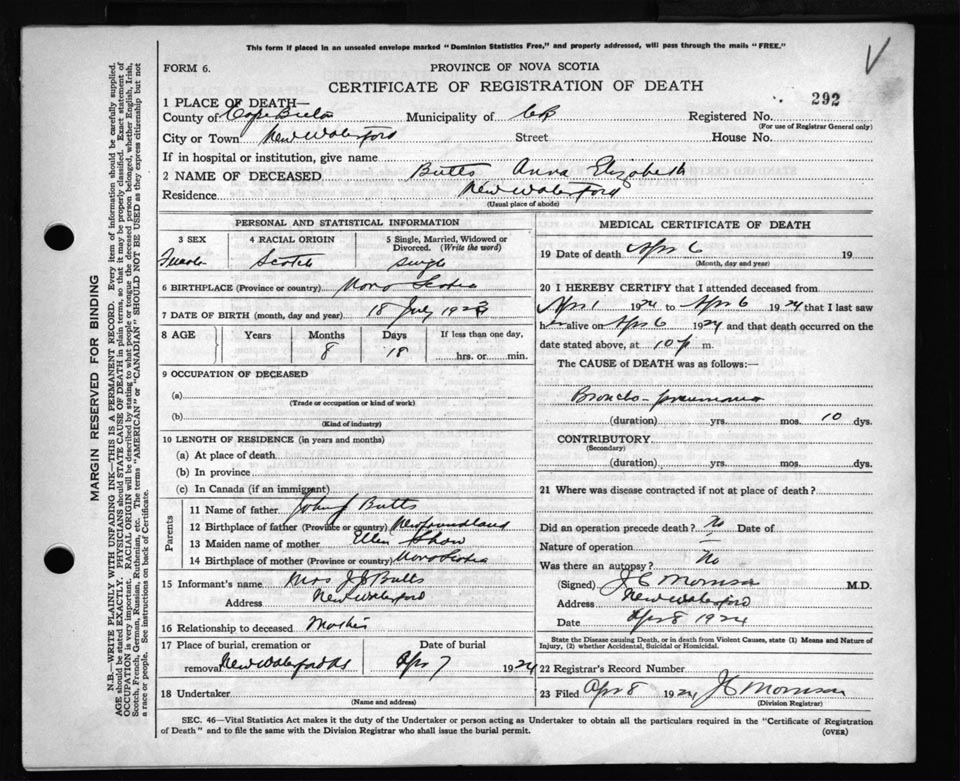 This form if placed in an unsealed envelope marked "Dominion Statistics Free," and properly addressed, will pass through the mails "FREE."
FORM 6.
PROVINCE OF NOVA SCOTIA
CERTIFICATE OF REGISTRATION OF DEATH
292
1 PLACE OF DEATH—
County of Cape Breton Municipality of CB Registered No.
(For use of Registrar General only)
City or Town New Waterford Street House No.
If in hospital or institution, give name
2 NAME OF DECEASED Butts Anna Elizabeth
Residence New Waterford
(Usual place of abode)
PERSONAL AND STATISTICAL INFORMATION
3 SEX 4 RACIAL ORIGIN 5 Single, Married, Widowed or Divorced. (Write the word)
Female Scotch Single
6 BIRTHPLACE (Province or country) Nova Scotia
7 DATE OF BIRTH (month, day and year) 18 July 1923
8 AGE Years Months Days If less than one day,
8 18 hrs. or min.
9 OCCUPATION OF DECEASED
(a)
(Trade or occupation or kind of work)
(b)
(Kind of industry)
10 LENGTH OF RESIDENCE (in years and months)
(a) At place of death
(b) In province
(c) In Canada (if an immigrant)
Parents
11 Name of father John J Butts
12 Birthplace of father (Province or country) Newfoundland
13 Maiden name of mother Ellen Shaw
14 Birthplace of mother (Province or country) Nova Scotia
15 Informant's name Mrs J J Butts
Address New Waterford
16 Relationship to deceased Mother
17 Place of burial, cremation or removal New Waterford Date of burial Apr 7 1924
18 Undertaker
(Name and address)
MEDICAL CERTIFICATE OF DEATH
19 Date of death Apr 6 19
(Month, day and year)
20 I HEREBY CERTIFY that I attended deceased from
Apr 1 1924 to Apr 6 1924 that I last saw
her alive on Apr 6 1924 and that death occurred on the
date stated above, at 10 p m.
The CAUSE of DEATH was as follows:—
Broncho-pneumonia
(duration) yrs. mos. 10 dys.
CONTRIBUTORY
(Secondary)
(duration) yrs. mos. dys.
21 Where was disease contracted if not at place of death?
Did an operation precede death? No Date of
Nature of operation
Was there an autopsy? No
(Signed) J C Morrison M.D.
Address New Waterford
Date Apr 8 1924
State the Disease causing Death, or in death from Violent Causes, state (1) Means and Nature of Injury, (2) whether Accidental, Suicidal or Homicidal.
22 Registrar's Record Number
23 Filed Apr 8 1924 J C Morrison
(Division Registrar)
SEC. 46—Vital Statistics Act makes it the duty of the Undertaker or person acting as Undertaker to obtain all the particulars required in the "Certificate of Registration
of Death" and to file the same with the Division Registrar who shall issue the burial permit.
(OVER)
MARGIN RESERVED FOR BINDING
N.B.—WRITE PLAINLY WITH UNFADING INK—THIS IS A PERMANENT RECORD. Every item of information should be carefully supplied.
AGE should be stated EXACTLY. PHYSICIANS should STATE CAUSE OF DEATH in plain terms, so that it may be properly classified. Exact statement of
OCCUPATION is very important. RACIAL ORIGIN will be described by stating to what people or tongue the deceased person belonged, whether English, Irish,
Scotch, French, German, Russian, Ruthenian, etc. The terms "AMERICAN" or "CANADIAN" SHOULD NOT BE USED as they express citizenship but not
a race or people. See instructions on back of Certificate.